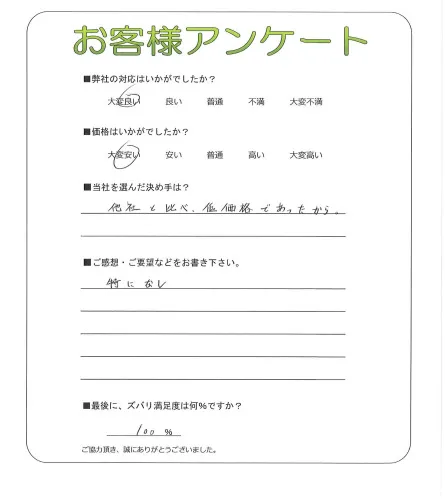 お客様アンケート
■弊社の対応はいかがでしたか?
大変良い 良い 普通 不満 大変不満
■価格はいかがでしたか?
大変安い 安い 普通 高い 大変高い
■当社を選んだ決め手は?
他社と比べ、低価格であったから。
■ご感想・ご要望などをお書き下さい。
特になし
■最後に、ズバリ満足度は何%ですか?
100 %
ご協力頂き、誠にありがとうございました。